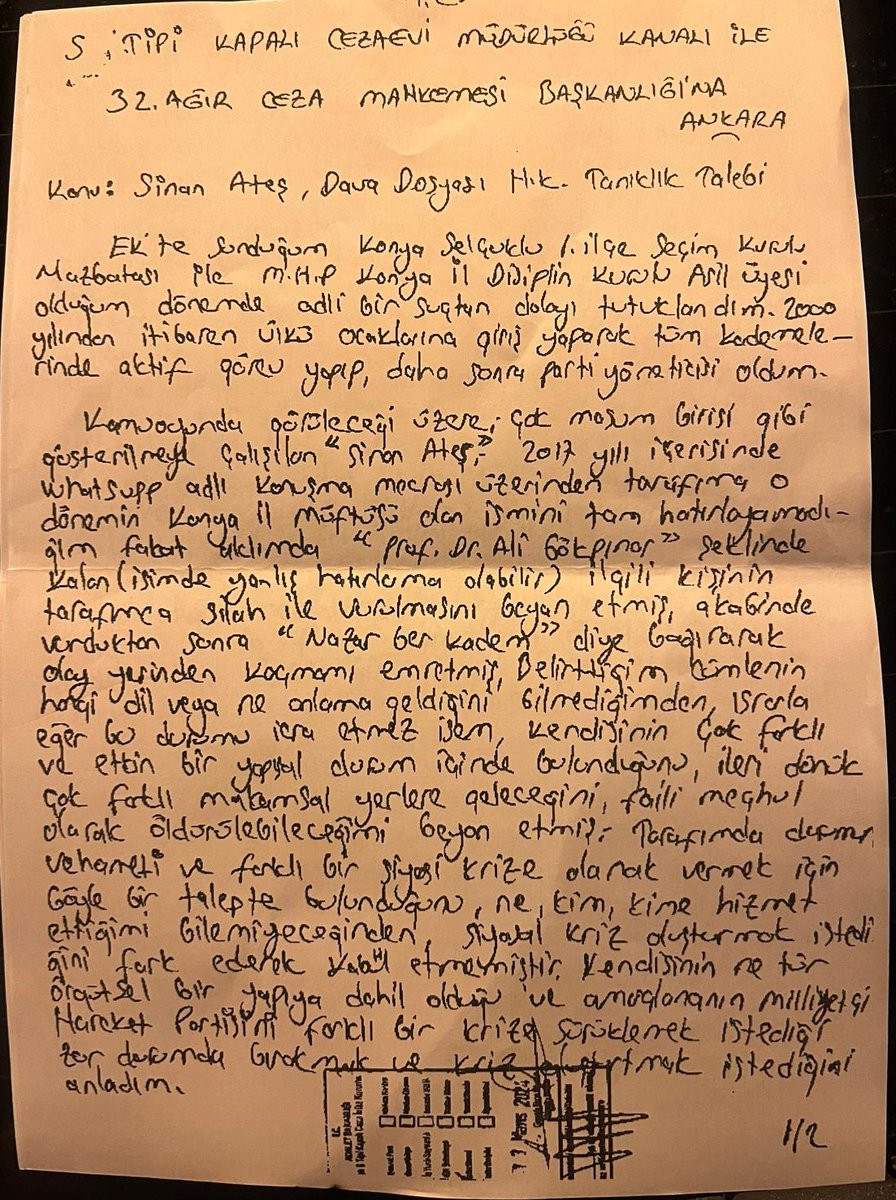 S TİPİ KAPALI CEZAEVİ MÜDÜRLÜĞÜ KANALI İLE
32. AĞIR CEZA MAHKEMESİ BAŞKANLIĞINA
ANKARA
Konu: Sinan Ateş, Dava Dosyası Hk. Tanıklık Talebi
Ek'te sunduğum Konya Selçuklu 1. ilçe Seçim Kurulu
Mazbatası ile M.H.P Konya İl Disiplin Kurulu Asil üyesi
olduğum dönemde adli bir suçtan dolayı tutuklandım. 2000
yılından itibaren ülkü ocaklarına giriş yaparak tüm kademele-
rinde aktif görev yapıp, daha sonra parti yöneticisi oldum.
Kamuoyunda görüleceği üzere; çok masum birisi gibi
gösterilmeye çalışılan "Sinan Ateş;" 2017 yılı içerisinde
whatsupp adlı konuşma mecrası üzerinden tarafıma o
dönemin Konya il müftüsü olan ismini tam hatırlayamadı-
ğım fakat aklımda "Prof. Dr. Ali Gökpınar" şeklinde
kalan (isimde yanlış hatırlama olabilir) ilgili kişinin
tarafımca silah ile vurulmasını beyan etmiş, akabinde
vurduktan sonra "Nazar ber kadem" diye bağırarak
olay yerinden kaçmamı emretmiş, Belirttiğim cümlenin
hangi dil veya ne anlama geldiğini bilmediğimden, ısrarla
eğer bu durumu icra etmez isem, kendisinin çok farklı
ve etkin bir yapısal durum içinde bulunduğunu, ileri dönük
çok farklı makamsal yerlere geleceğini, faili meçhul
olarak öldürülebileceğimi beyan etmiş. Tarafımda durumun
vehameti ve farklı bir siyasi krize olanak vermek için
böyle bir talepte bulunduğunu, ne, kim, kime hizmet
ettiğimi bilemiyeceğinden, siyasal kriz oluşturmak istedi
ğini fark ederek kabul etmemiştir. Kendisinin ne tür
örgütsel bir yapıya dahil olduğu ve amaçlananın milliyetçi
Hareket Partisini farklı bir krize sürüklemek istediği
zor durumda bırakmak ve kriz istediğini
anladım.
T.C.
2024
1/2